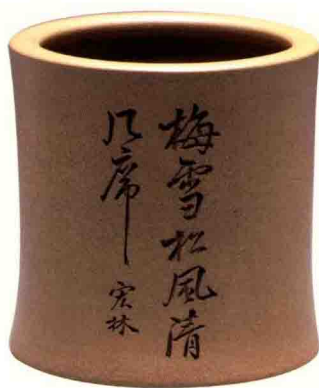 梅雪松風清
几席 宏林